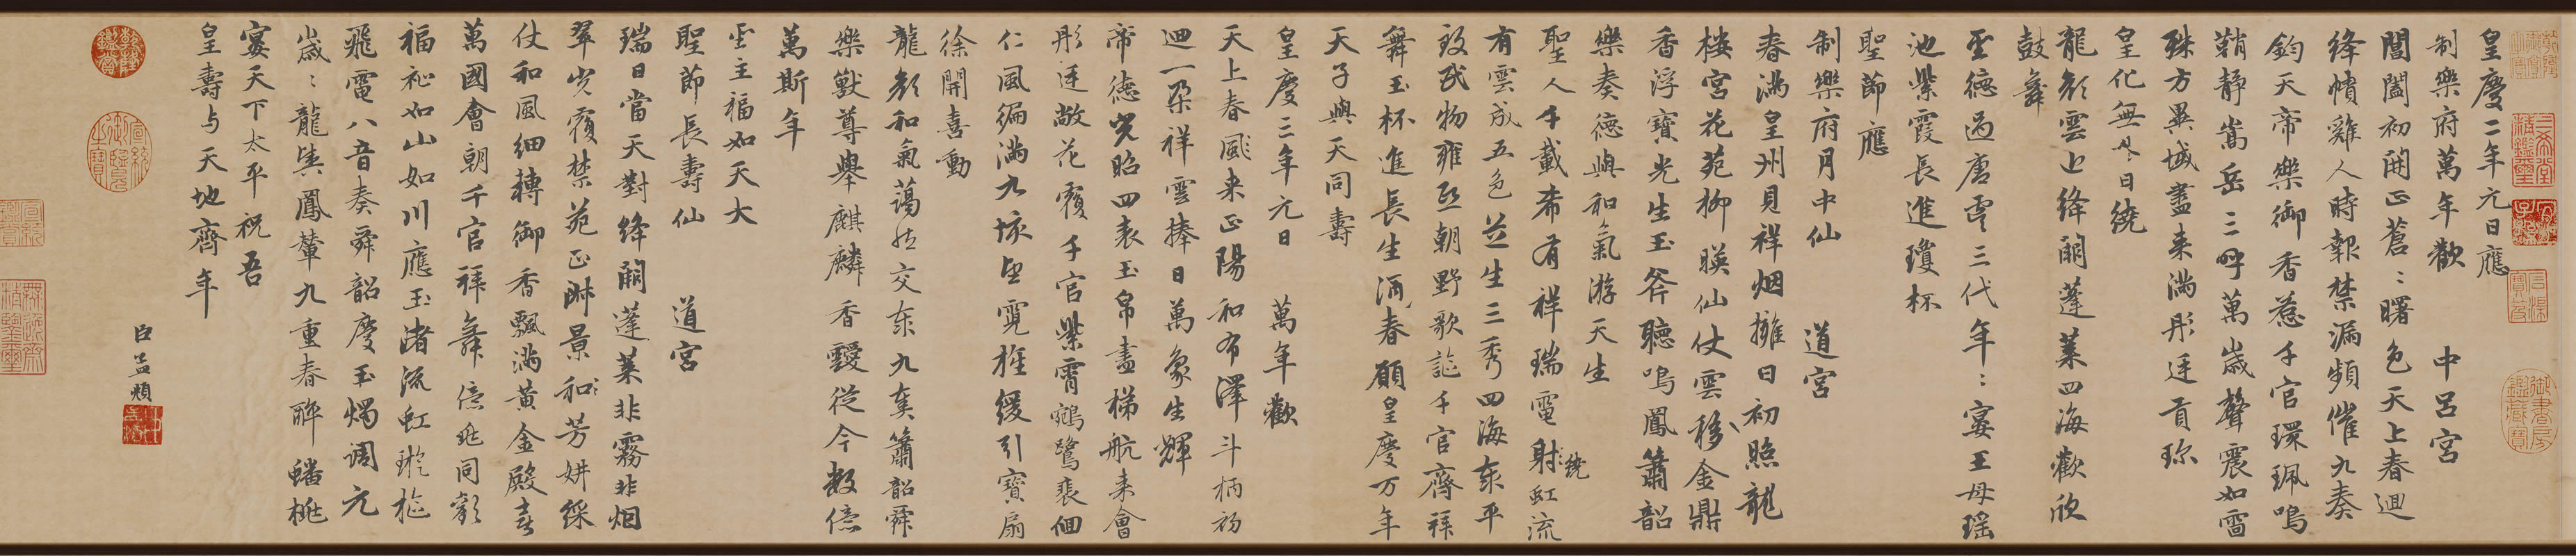 皇慶二年元日應
制樂府萬年歡 中呂宮
閶闔初開正蒼〻曙色天上春迴
絳幘雞人時報禁漏頻催九奏
鈞天帝樂御香惹千官環珮鳴
鞘靜嵩岳三呼萬歲聲震如雷
殊方異域盡来滿彤廷貢珎
皇化無外日繞
龍顏雲近絳闕蓬萊四海歡欣
鼓舞
聖德過唐虞三代年〻宴王母瑤
池紫霞長進瓊杯
聖節應
制樂府月中仙 道宮
春滿皇州見祥烟擁日初照龍
樓宮花苑柳暎仙仗雲移金鼎
香浮寶光生玉斧聽鳴鳳簫韶
樂奏德與和氣游天生
聖人千載希有祥瑞電射繞虹流
有雲成五色芝生三秀四海泰平
致民物雍熙朝野歌謳千官齊拜
舞玉杯進長生酒春願皇慶万年
天子與天同壽
皇慶三年元日 萬年歡
天上春風来正陽和布澤斗柄初
迴一朶祥雲捧日萬象生輝
帝德光昭四表玉帛盡梯航来會
彤廷敞花覆千官紫霄鵷鷺裴佪
仁風徧滿九垓望霓旌緩引寶扇
徐開喜動
龍顏和氣藹然交泰九奏簫韶舜
樂獸尊舉麒麟香靉從今數億
萬斯年
聖主福如天大
聖節長壽仙 道宮
瑞日當天對絳闕蓬萊非霧非烟
翠光覆禁苑正淑景和芳妍綵
仗和風細轉御香飄滿黃金殿喜
萬國會朝千官拜舞億兆同歡
福祉如山如川應玉渚流虹璇樞
飛電八音奏舜韶慶玉燭調元
歲〻龍輿鳳輦九重春醉蟠桃
宴天下太平祝吾
皇壽与天地齊年
臣孟頫